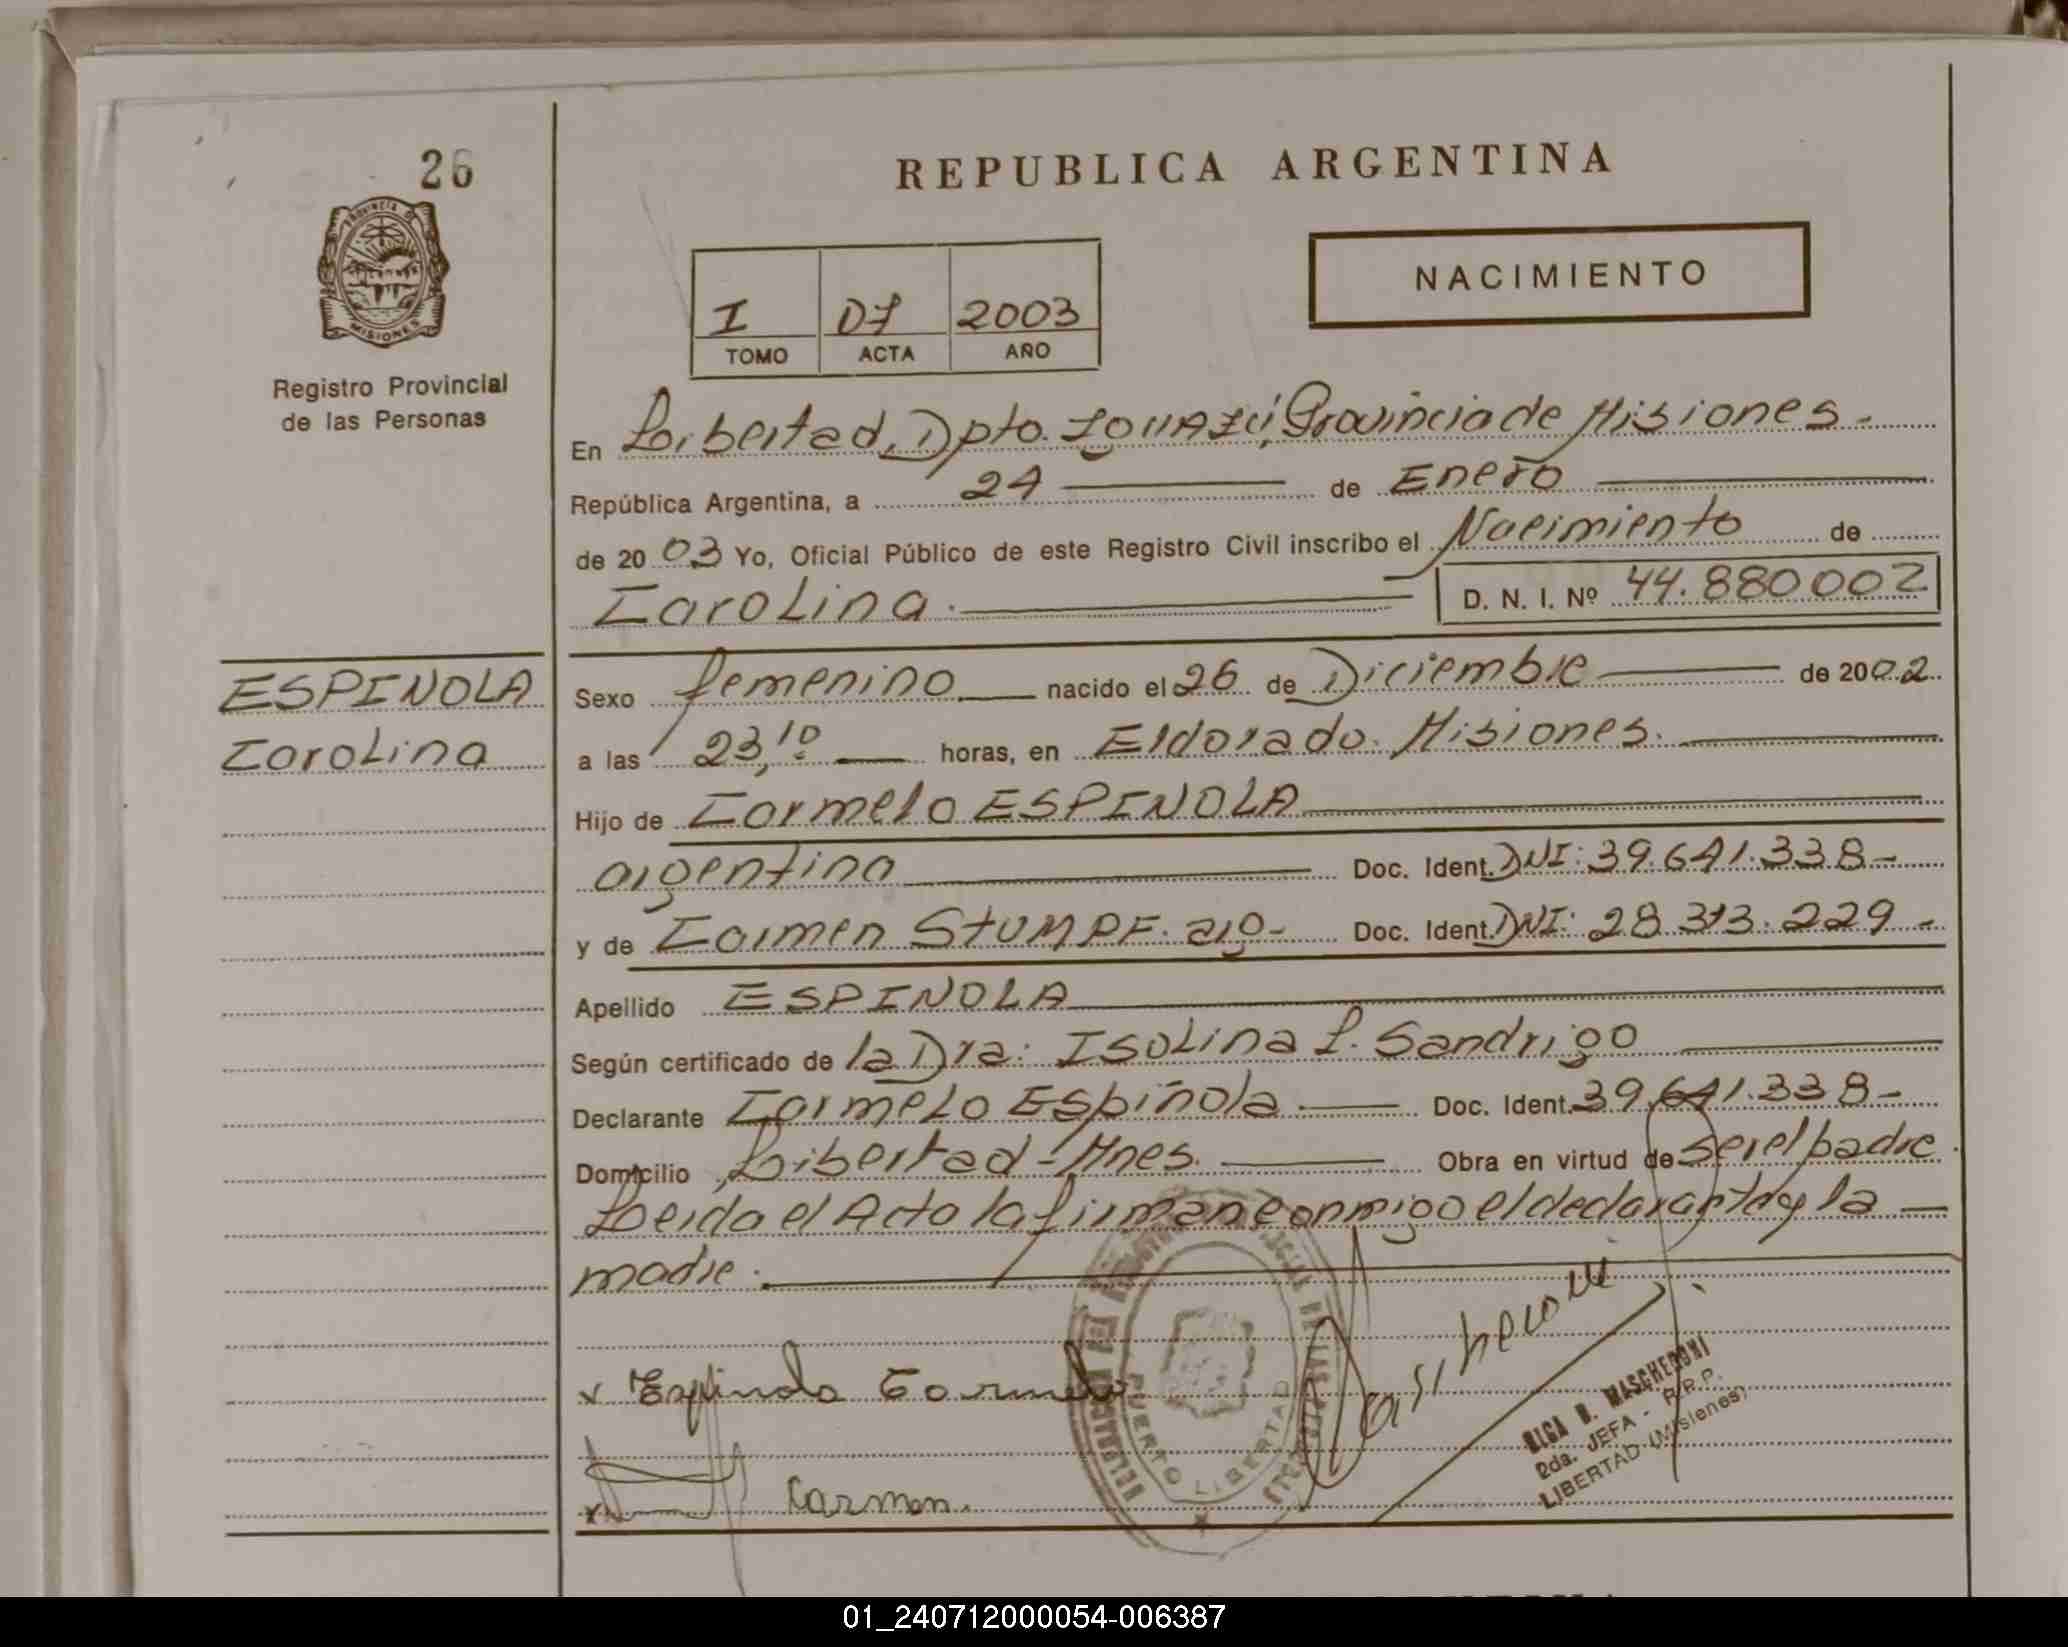 26
PROVINCIA DE
MISIONES
Registro Provincial
de las Personas
REPUBLICA ARGENTINA
NACIMIENTO
I 07 2003
TOMO ACTA AÑO
En Libertad, Dpto. IGUAZÚ, Provincia de Misiones.-
República Argentina, a 24 de Enero
de 2003 Yo, Oficial Público de este Registro Civil inscribo el Nacimiento de
Carolina. D. N. I. Nº 44.880002
ESPINOLA
Carolina
Sexo femenino nacido el 26 de Diciembre de 2002
a las 23,10 horas, en Eldorado. Misiones.
Hijo de Carmelo ESPINOLA
argentina Doc. Ident. DNI: 39.641.338-
y de Carmen STUMPF. arg- Doc. Ident. DNI: 28.313.229-
Apellido ESPINOLA
Según certificado de la Dra: Isolina L. Sandrigo
Declarante Carmelo Espínola. Doc. Ident. 39.641.338-
Domicilio Libertad-Mnes. Obra en virtud de ser el padre.
Leida el Acta la firman conmigo el declarante y la
madre.
x Espinola Carmelo
x Carmen.
PUERTO LIBERTAD
MASCHERONI
2da. JEFA - R.R.P.
LIBERTAD (Misiones)
01_240712000054-006387